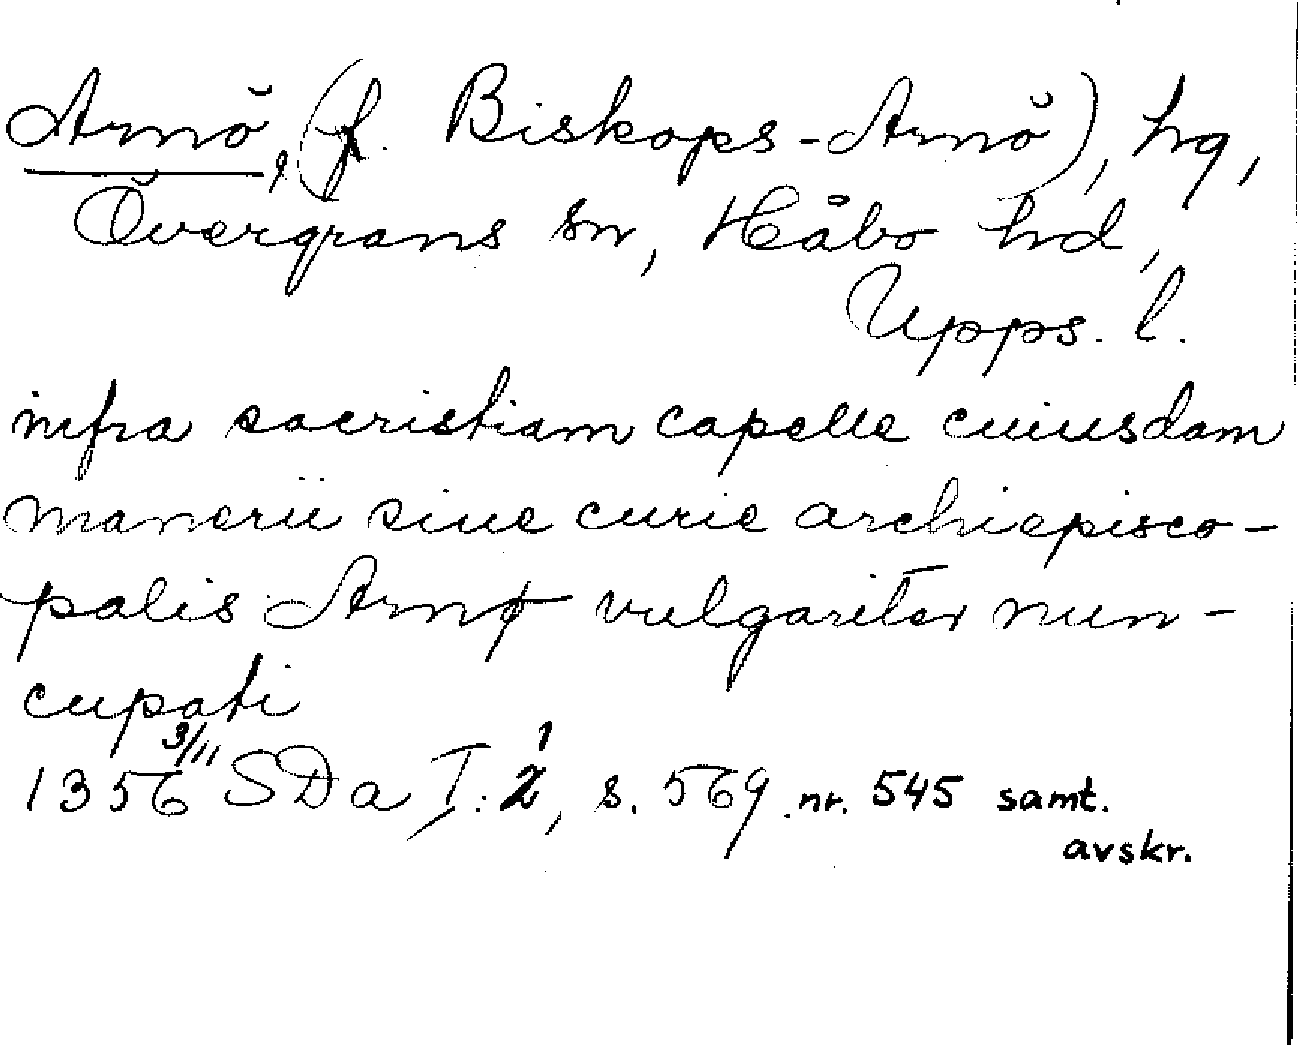 Arnö, (f. Biskops-Arnö), hg,
Övergrans sn, Håbo hd,
Upps. l.
infra sacristiam capelle cuiusdam
manerii siue curie archiepisco-
palis Arnø vulgariter nun-
cupati
1356 3/11 SDa I: 1, s. 569 nr. 545 samt.
avskr.